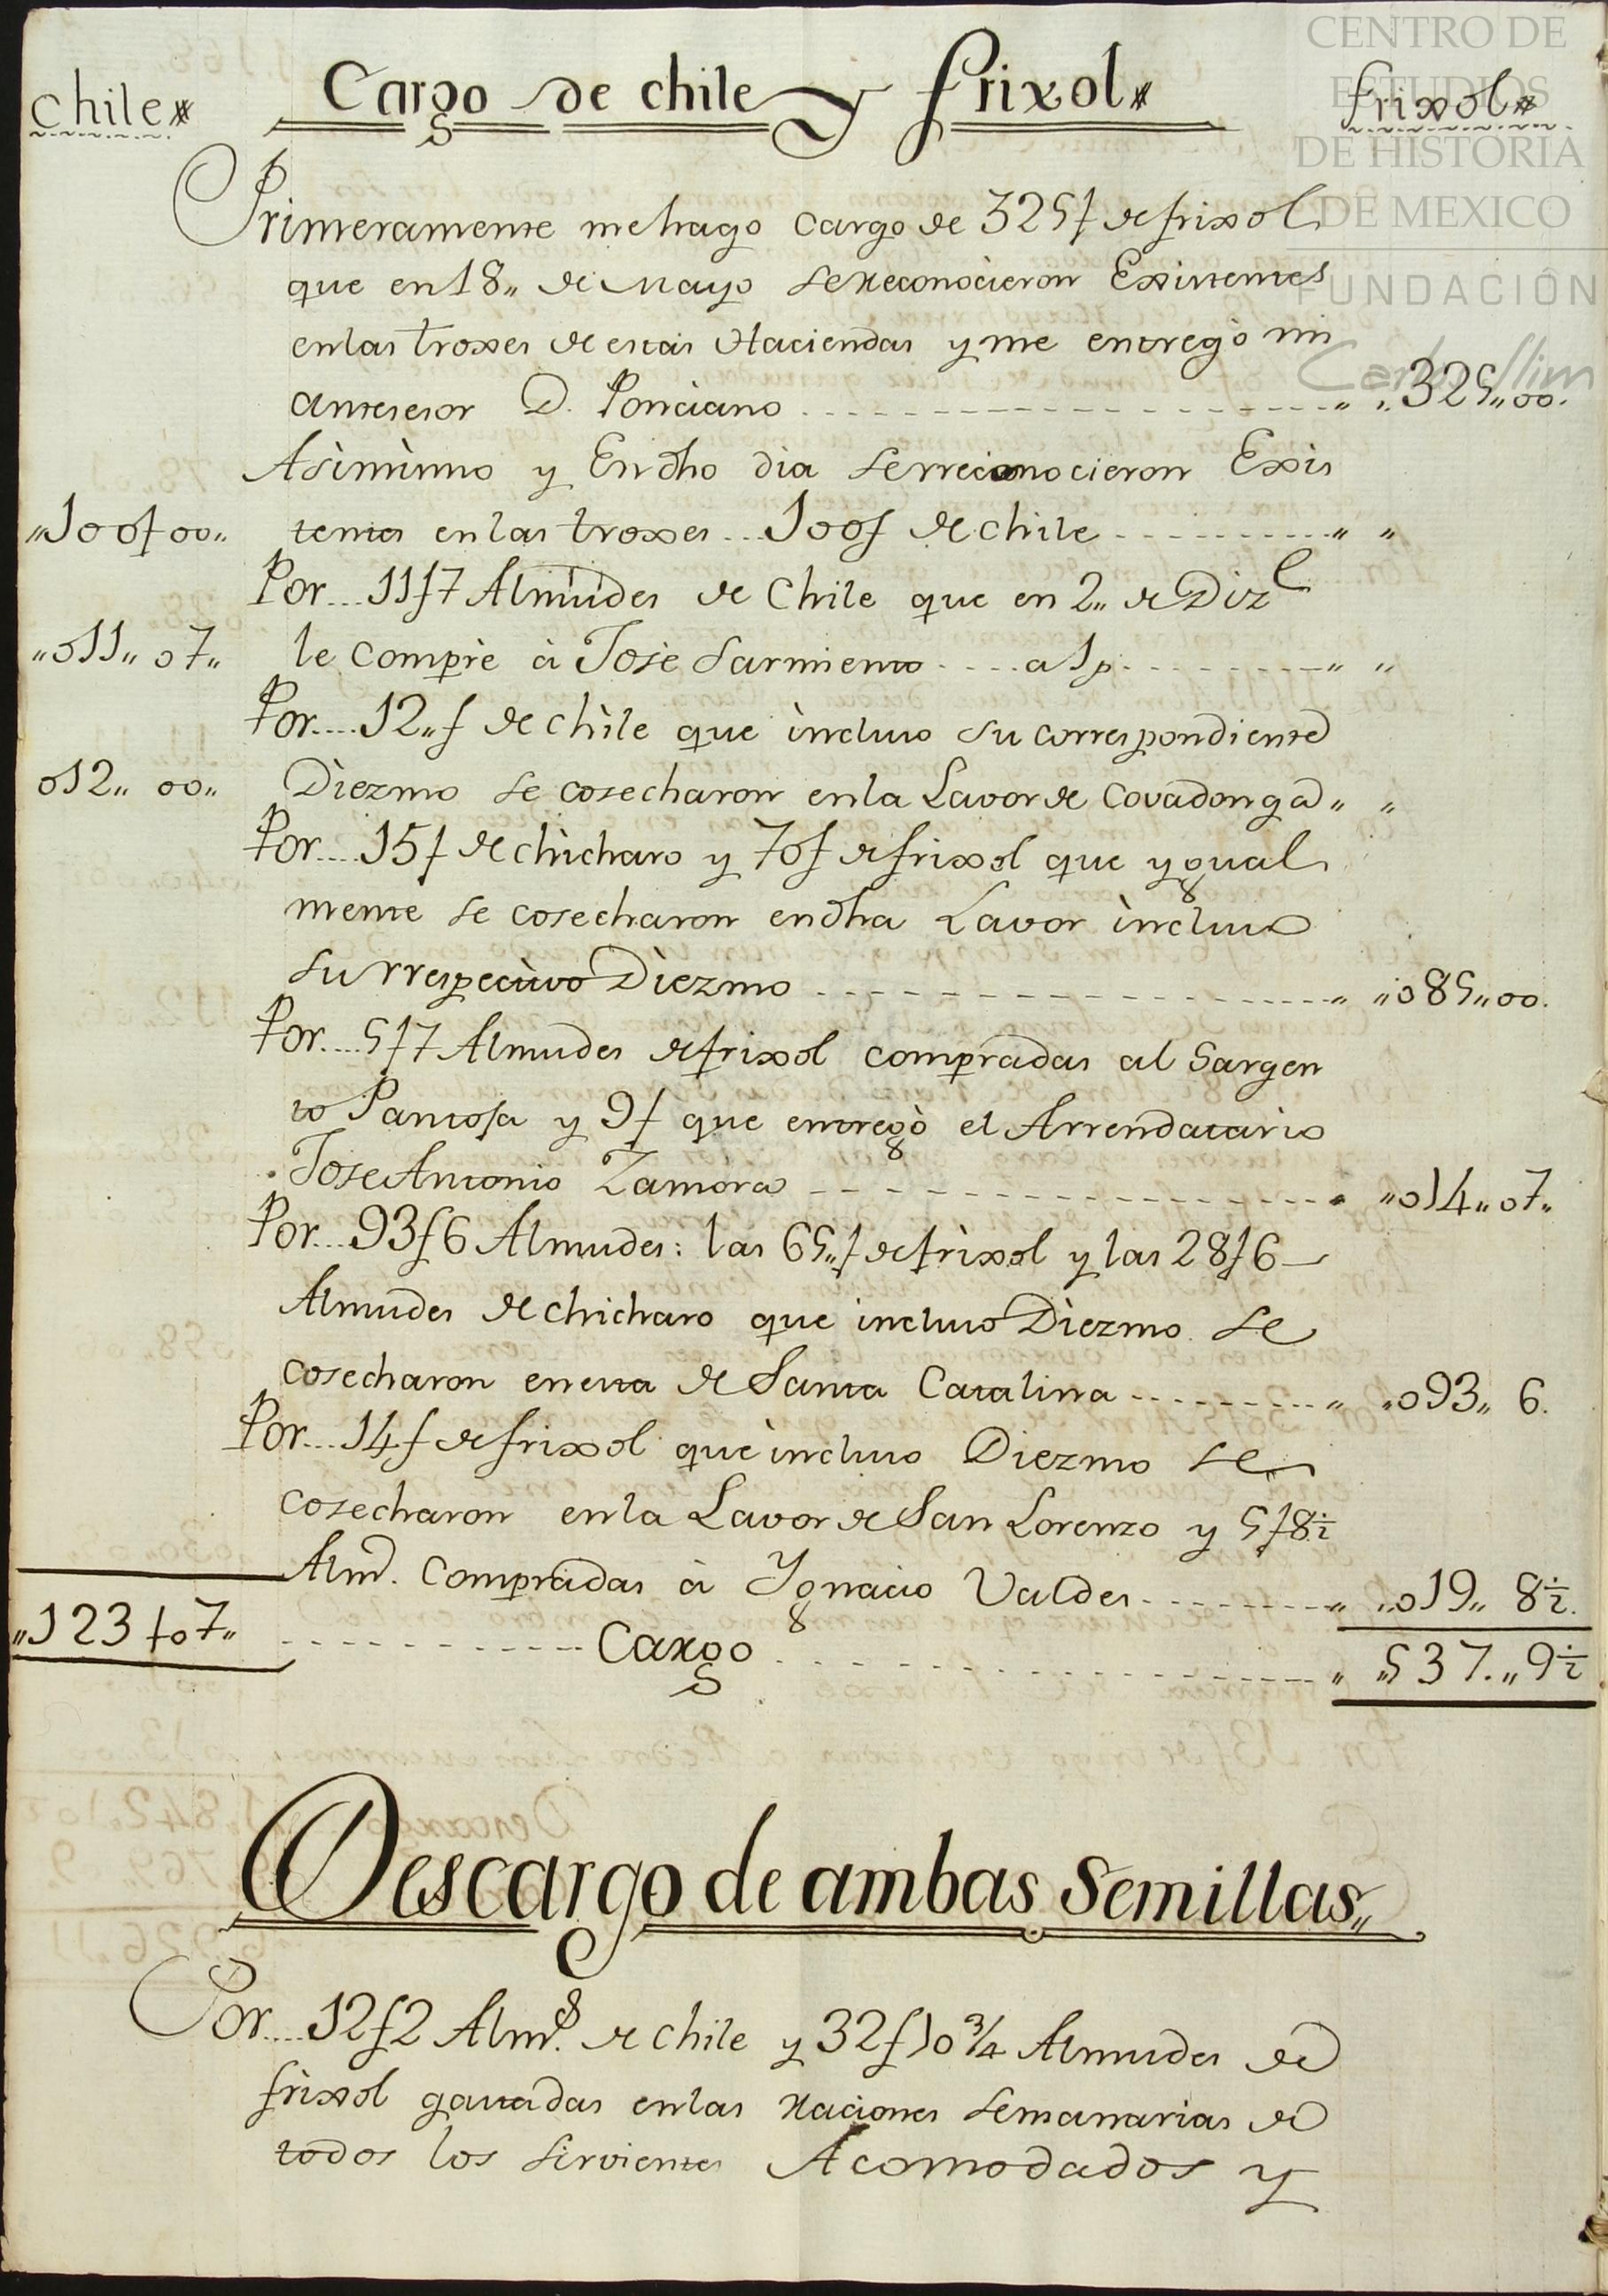 CENTRO DE
ESTUDIOS
DE HISTORIA
DE MEXICO
FUNDACIÓN
Carlos Slim
chile Cargo de chile y frixol frixol
Primeramente me hago cargo de 325f de frixol
que en 18,, de Mayo se reconocieron Existentes
en las troxes de estas Haciendas y me entregò mi
antesesor D. Ponciano ,, ,,325,,00.
Asìmìsmo y En dho dia se rreconocieron Exis
,,100f00,, tentes en las troxes... 100f de chile ,, ,,
Por....11f7 Almudes de Chile que en 2,, de Dize
,,011,,07,, le comprè à Josè Sarmiento ....a 1p ,, ,,
Por....12,,f de chìle que ìncluso su correspondiente
012,,00,, Dìezmo se cosecharon en la Lavor de Covadonga ,, ,,
Por....15f de chìcharo y 70f de frixol que ygual
mente se cosecharon en dha Lavor ìncluso
su rrespectìvo Dìezmo ,, ,,085,,00.
Por....5f7 Almudes de frixol compradas al Sargen
to Pantoja y 9f que entregò el Arrendatario
Jose Antonio Zamora ,, ,,014,,07,,
Por...93f6 Almudes: las 65,,f de frìxol y las 28f6
Almudes de chicharo que incluso Dìezmo se
cosecharon en esta de Santa Catalina ,, ,,093,, 6.
Por...14f de frixol que ìncluso Diezmo se
cosecharon en la Lavor de San Lorenzo y 5f8½
Almd. compradas à Ygnacio Valdes ,, ,,019,, 8½.
,,123f07,, Cargo ,, ,,537.,,9½
Descargo de ambas Semillas,,
Por....12f2 Almds. de chile y 32f10¾ Almudes de
frìxol gastadas en las raciones semanarias de
todos los sirvientes Acomodados y